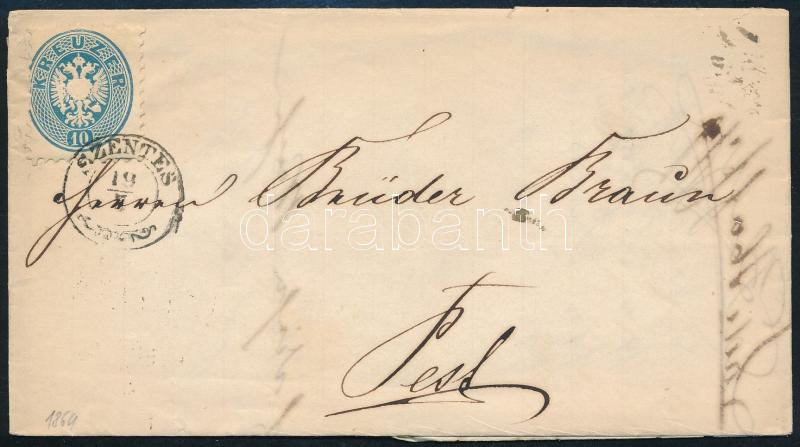 KREUZER
10
SZENTES
19
Herren Brüder Braun
Pest
darabanth
1864